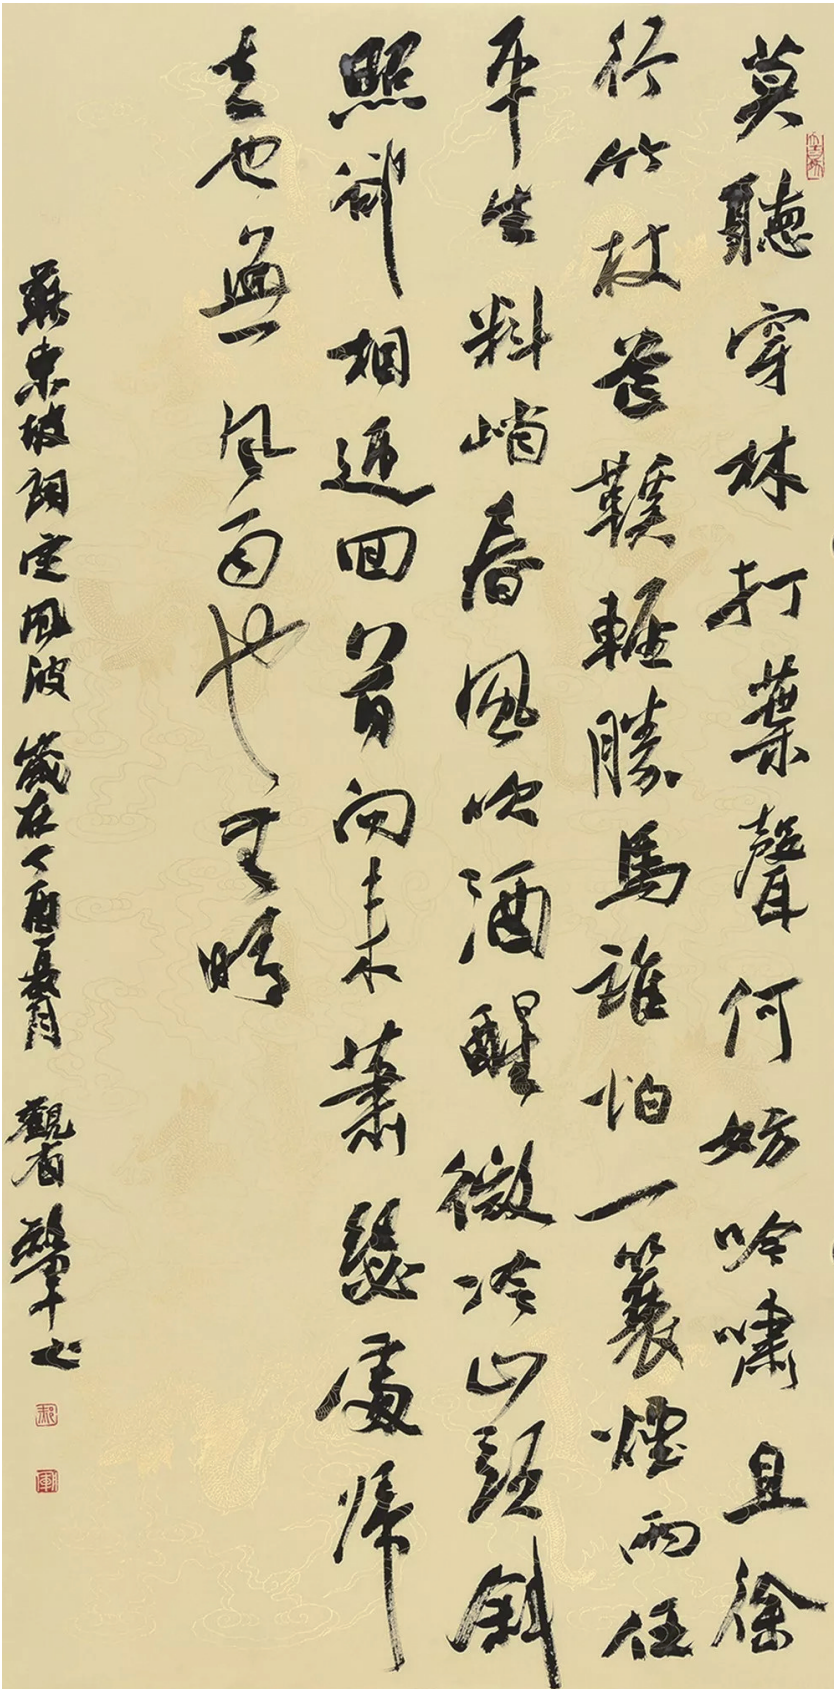 莫聽穿林打葉聲何妨吟嘯且徐
行竹杖芒鞵輕勝馬誰怕一蓑煙雨任
平生料峭春風吹酒醒微冷山頭斜
照卻相迎回首向来蕭瑟處帰
去也無風雨也無晴
蘇東坡詞定風波歲在丁酉夏月觀有